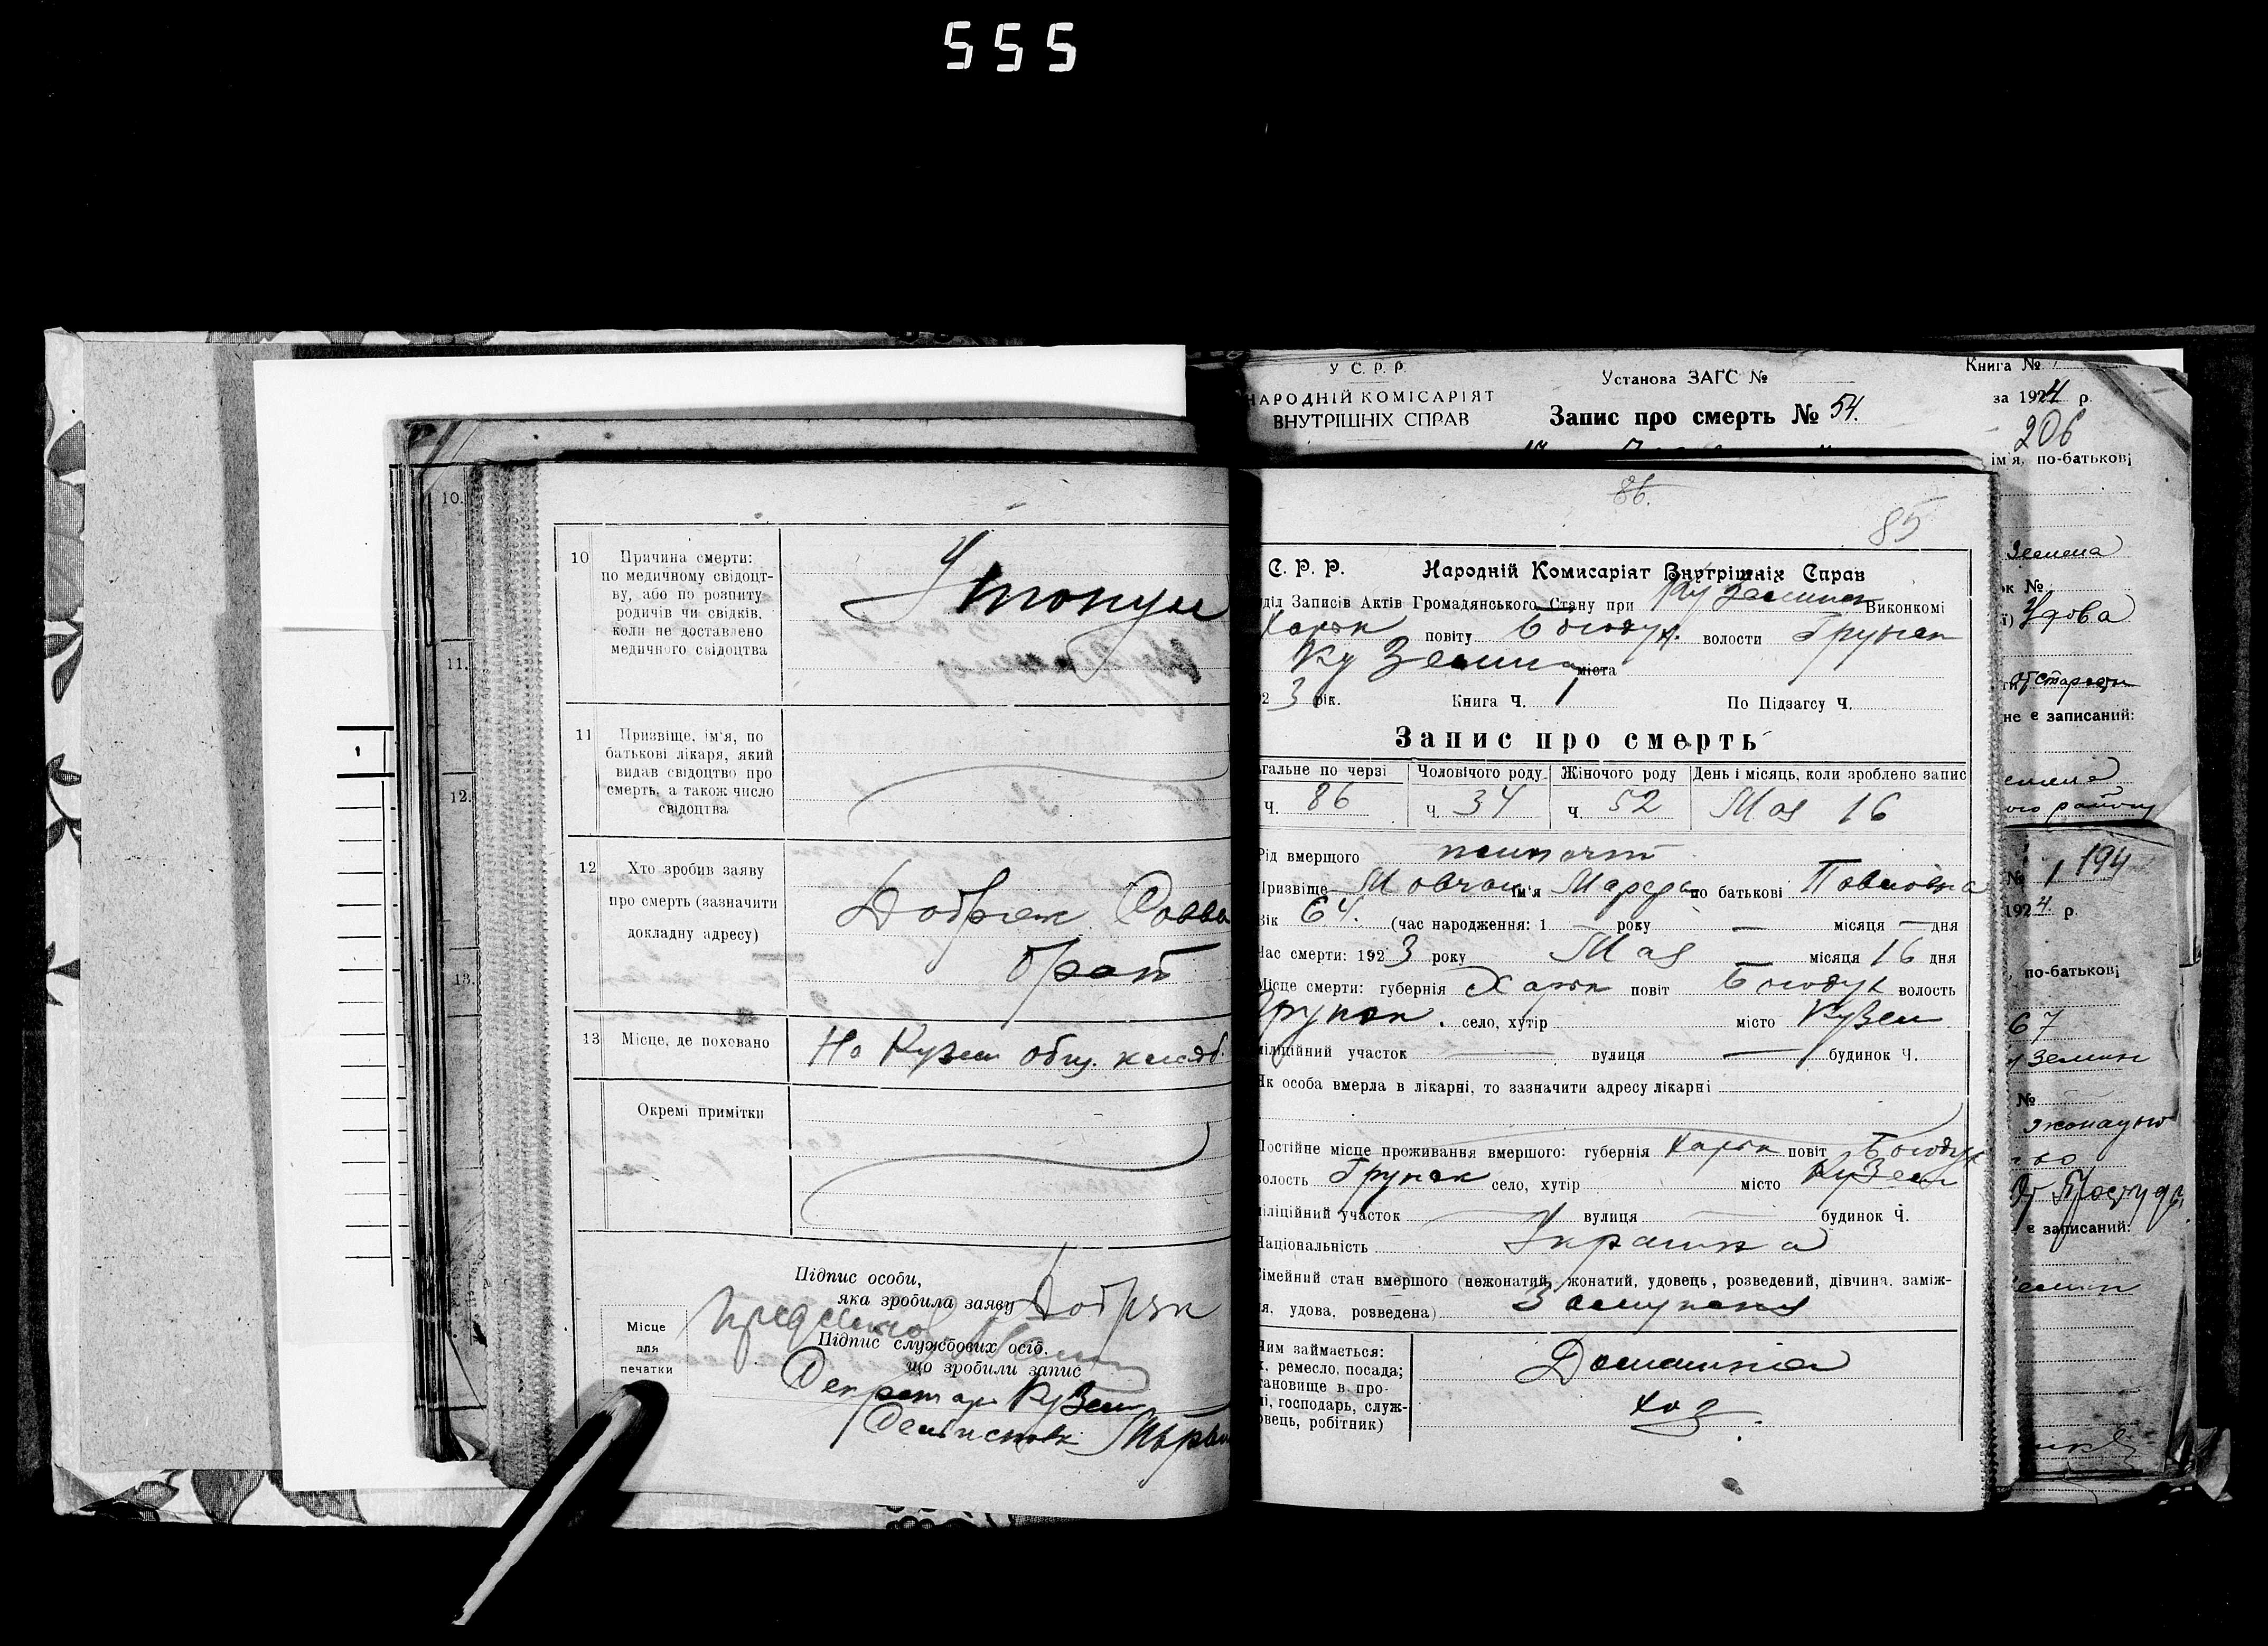 555
10.
11.
12.
13.
10 Причина смерти:
по медичному свідоцт-
ву, або по розпиту
родичів чи свідків,
коли не доставлено
медичного свідоцтва
Утонул
11 Призвіще, ім'я, по
батькові лікаря, який
видав свідоцтво про
смерть, а також число
свідоцтва
12 Хто зробив заяву
про смерть (зазначити
докладну адресу)
Добряк Савва
брат
13 Місце, де поховано
На Кузем общ. кладб.
Окремі примітки
Підпис особи,
яка зробила заяву Добряк
Підпис службових осіб,
що зробили запис
Місце
для
печатки
Секретарь Кузем
У С. Р. Р.
НАРОДНІЙ КОМІСАРІЯТ
ВНУТРІШНІХ СПРАВ
Установа ЗАГС №
Запис про смерть № 54.
Книга №
за 1924 р.
206
ім'я, по-батькові
86.
85
С. Р. Р. Народній Комисаріят Внутрішніх Справ
діл Записів Актів Громадянського Стану при Куземинск Виконкомі
Харьк повіту Богодух. волости Грунск
Куземина міста
2 3 рік. Книга Ч. 1 По Підзагсу Ч.
Запис про смерть
гальне по черзі Чоловічого роду Жіночого роду День і місяць, коли зроблено запис
Ч. 86 Ч. 34 Ч. 52 Мая 16
Рід вмершого
Призвіще Мовчан ім'я по батькові Павловна
Вік 64. (час народження: 1 — року — місяця — дня
Час смерти: 1923 року Мая місяця 16 дня
Місце смерти: губернія Харьк повіт Богодух волость
Грунск. село, хутір місто Кузем
міліційний участок — вулиця — будинок Ч.
Як особа вмерла в лікарні, то зазначити адресу лікарні
Постійне місце проживання вмершого: губернія Харьк повіт Богодух
волость Грунск село, хутір місто Кузем
міліційний участок вулиця будинок Ч.
Національність Украинка
Сімейний стан вмершого (нежонатий, жонатий, удовець, розведений, дівчина, заміж-
я, удова, розведена) Замужняя
Чим займається:
х, ремесло, посада;
тановище в про-
і, господарь, служ-
овець, робітник)
Домашняя
хоз.
ок №
Удова
не є записаний:
№ 1 194
1924. р.
по-батькові
67
№
є записаний: